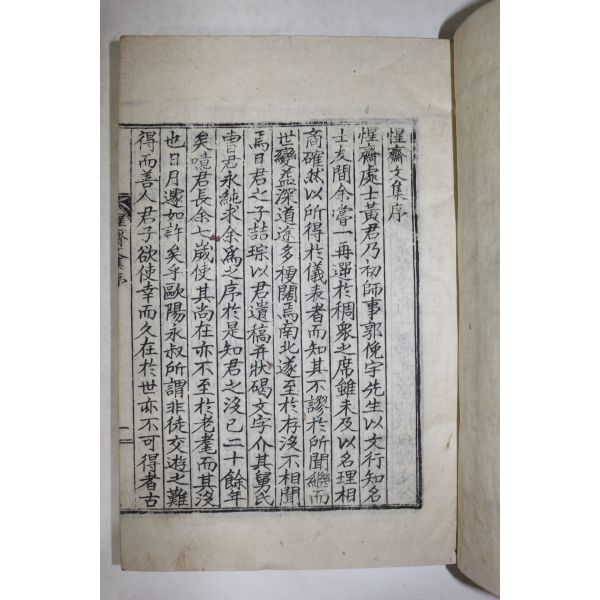 惺齋文集序
惺齋處士黃君乃初師事郭俛宇先生以文行知名
士友間余嘗一再選於稠衆之席雖未及以名理相
商確然以所得於儀表者而知其不謬於所聞繼而
世變益深道途多梗闊焉南北遂至於存沒不相聞
焉日君之子喆琮以君遺稿幷狀碣文字介其舅氏
曺君永純求余爲之序於是知君之沒已二十餘年
矣噫君長余七歲使其尚在亦不至於老耄而其沒
也日月遽如許矣乎歐陽永叔所謂非徒交遊之難
得而善人君子欲使幸而久在於世亦不可得者古
惺齋集序
一